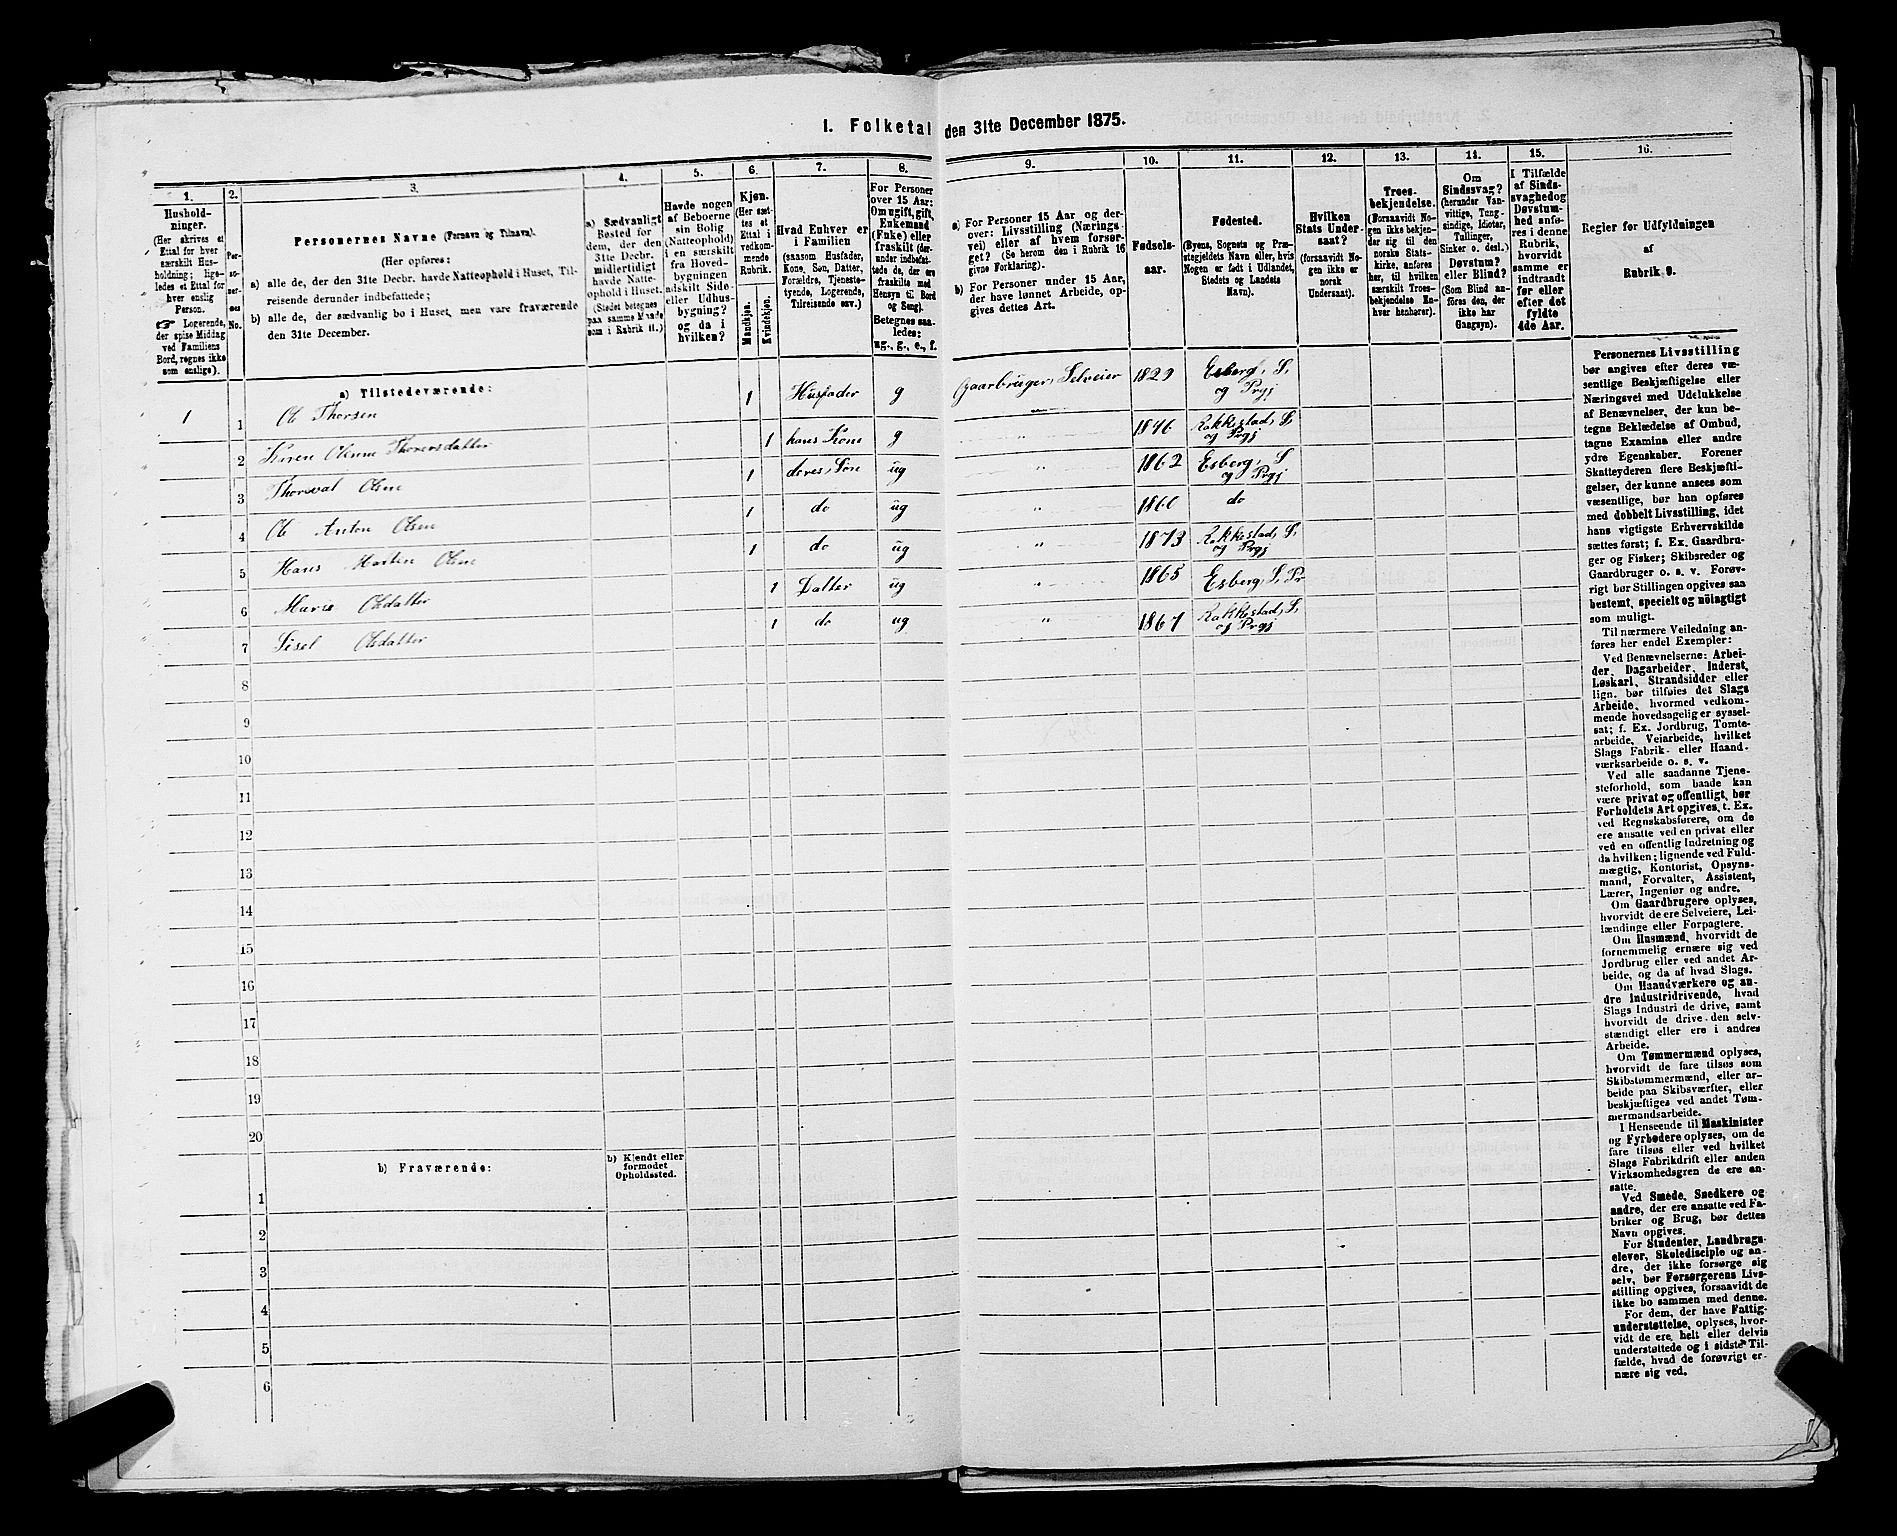 1. Folketal den 31te December 1875.
1.
2.
3.
4.
5.
6.
7.
8.
9.
10.
11.
12.
13.
14.
15.
16.
Hushold-
ninger.
(Her skrives et
Ettal for hver
særskilt Hus-
holdning; lige-
ledes et Ettal for
hver enslig
Person.
☞ Logerende,
der spise Middag
ved Familiens
Bord, regnes ikke
som enslige).
Per-
so-
ner-
nes
No.
Personernes Navne (Fornavn og Tilnavn).
(Her opføres:
a) alle de, der den 31te Decbr. havde Natteophold i Huset, Til-
reisende derunder indbefattede;
b) alle de, der sædvanlig bo i Huset, men vare fraværende
den 31te December.
a) Sædvanligt
Bosted for
dem, der den
31te Decbr.
midlertidigt
havde Natte-
ophold i Huset.
(Stedet betegnes
paa samme Maade
som i Rubrik 11.)
Havde nogen
af Beboerne
sin Bolig
(Natteophold)
i en særskilt
fra Hoved-
bygningen
adskilt Side-
eller Udhus-
bygning?
og da i
hvilken?
Kjøn.
(Her sæt-
tes et
Ettal i
vedkom-
mende
Rubrik.
Mandkjøn.
Kvindekjøn.
Hvad Enhver er
i Familien
(saasom Husfader,
Kone, Søn, Datter,
Forældre, Tjeneste-
tyende, Logerende,
Tilreisende osv.)
For Personer
over 15 Aar:
Om ugift, gift,
Enkemand
(Enke) eller
fraskilt (der-
under indbefat-
tede de, der ere
fraskilte med
Hensyn til Bord
og Seng).
Betegnes saa-
ledes:
ug., g., e., f.
a) For Personer 15 Aar og der-
over: Livsstilling (Nærings-
vei) eller af hvem forsør-
get? (Se herom den i Rubrik 16
givne Forklaring).
b) For Personer under 15 Aar,
der have lønnet Arbeide, op-
gives dettes Art.
Fødsels-
aar.
Fødested.
(Byens, Sognets og Præ-
stegjeldets Navn eller, hvis
Nogen er født i Udlandet,
Stedets og Landets
Navn).
Hvilken
Stats Under-
saat?
(forsaavidt No-
gen ikke er
norsk
Undersaat).
Troes-
bekjendelse.
(Forsaavidt No-
gen ikke bekjen-
der sig til den
norske Stats-
kirke, anføres
her, til hvilken
særskilt Troes-
bekjendelse En-
hver henhører).
Om
Sindssvag?
(herunder Van-
vittige, Tung-
sindige, Idioter,
Tullinger,
Sinker o. desl.)
Døvstum?
eller Blind?
(Som Blind an-
føres den, der
ikke har
Gangsyn).
I Tilfælde
af Sinds-
svaghed og
Døvstum-
hed anfø-
res i denne
Rubrik,
hvorvidt
samme er
indtraadt
før eller
efter det
fyldte
4de Aar.
Regler for Udfyldningen
af
Rubrik 9.
a) Tilstedeværende:
1 1 Ole Thorsen 1 Husfader g Gaarbruger, Selveier 1829 Esberg, S,
og Prgj
2 Karen Olene Thoresdatter 1 hans Kone g " 1846 Rakkestad, S,
og Prgj
3 Thorval Olsen 1 deres, Søn ug " 1862 Esberg, S
og Prgj
4 Ole Anton Olsen 1 do ug " 1860 do
5 Hans Martin Olsen 1 do ug " 1873 Rakkestad, S,
og Prgj
6 Marie Olsdatter 1 Datter ug " 1865 Esberg, S, Pr
7 Sisel Olsdatter 1 do ug " 1867 Rakkestad, S,
og Prgj
8
9
10
11
12
13
14
15
16
17
18
19
20
b) Fraværende:
b) Kjendt eller
formodet
Opholdssted.
1
2
3
4
5
6
Personernes Livsstilling
bør angives efter deres væ-
sentlige Beskjæftigelse eller
Næringsvei med Udelukkelse
af Benævnelser, der kun be-
tegne Beklædelse af Ombud,
tagne Examina eller andre
ydre Egenskaber. Forener
Skatteyderen flere Beskjæfti-
gelser, der kunne ansees som
væsentlige, bør han opføres
med dobbelt Livsstilling, idet
hans vigtigste Erhvervskilde
sættes først; f. Ex. Gaardbru-
ger og Fisker; Skibsreder og
Gaardbruger o. s. v. Forøv-
rigt bør Stillingen opgives saa
bestemt, specielt og nøiagtigt
som muligt.
Til nærmere Veiledning an-
føres her endel Exempler:
Ved Benævnelserne: Arbei-
der, Dagarbeider, Inderst,
Løskarl, Strandsidder eller
lign. bør tilføies det Slags
Arbeide, hvormed vedkom-
mende hovedsagelig er syssel-
sat; f. Ex. Jordbrug, Tomte-
arbeide, Veiarbeide, hvilket
Slags Fabrik- eller Haand-
værksarbeide o. s. v.
Ved alle saadanne Tjene-
steforhold, som baade kan
være privat og offentligt, bør
Forholdets Art opgives, t. Ex.
ved Regnskabsførere, om de
ere ansatte ved en privat eller
ved en offentlig Indretning og
da hvilken; lignende ved Fuld-
mægtig, Kontorist, Opsyns-
mand, Forvalter, Assistent,
Lærer, Ingeniør og andre.
Om Gaardbrugere oplyses,
hvorvidt de ere Selveiere, Lei-
lændinge eller Forpagtere.
Om Husmænd, hvorvidt de
fornemmelig ernære sig ved
Jordbrug eller ved andet Ar-
beide, og da af hvad Slags.
Om Haandværkere og an-
dre Industridrivende, hvad
Slags Industri de drive, samt
hvorvidt de drive den selv-
stændigt eller ere i andres
Arbeide.
Om Tømmermænd oplyses,
hvorvidt de fare tilsøs som
Skibstømmermænd, eller ar-
beide paa Skibsværfter, eller
beskjæftiges ved andet Tøm-
mermandsarbeide.
I Henseende til Maskinister
og Fyrbødere oplyses, om de
fare tilsøs eller ved hvilket
Slags Fabrikdrift eller anden
Virksomhedsgren de ere an-
satte.
Ved Smede, Snedkere og
andre, der ere ansatte ved Fa-
briker og Brug, bør dettes
Navn opgives.
For Studenter, Landbrugs-
elever, Skoledisciple og an-
dre, der ikke forsørge sig
selv, bør Forsørgerens Livs-
stilling opgives, forsaavidt de
ikke bo sammen med denne.
For dem, der have Fattig-
understøttelse, oplyses, hvor-
vidt de ere helt eller delvis
understøttede og i sidste Til-
fælde, hvad de forøvrigt er-
nære sig ved.